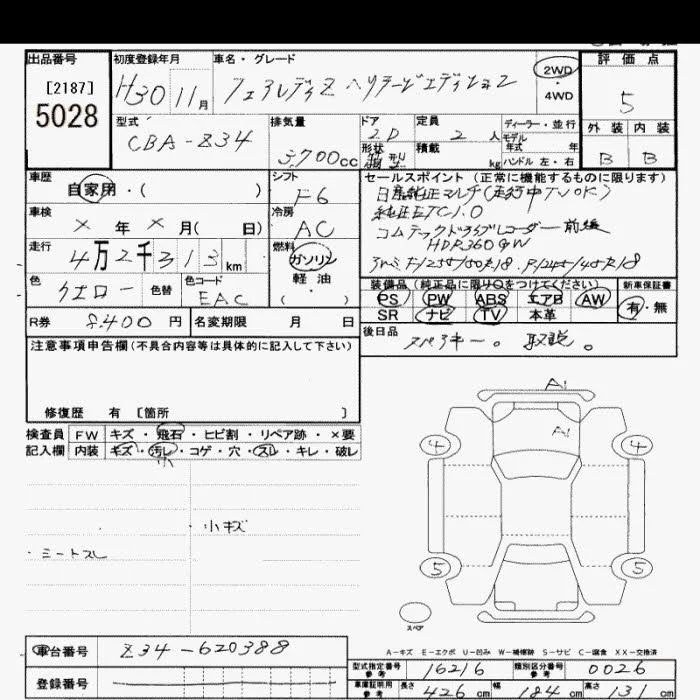 出品番号
[2187]
5028
初度登録年月
H30 11月
車名・グレード
フェアレディZ ヘリテージエディション
2WD
4WD
評価点
5
外装 内装
B B
型式
CBA-Z34
排気量
3,700cc
ドア
2D
形状
定員
2人
積載
kg
ディーラー・並行
モデル
年式 年
ハンドル 左・右
車歴
自家用・( )
シフト
F6
車検
× 年 × 月( 日)
冷房
AC
走行
4万2千313km
燃料
ガソリン
軽油
色
イエロー
色替
色コード
EAC
R券
8,400円
名変期限 月 日
セールスポイント(正常に機能するものに限ります)
日産純正マルチ(走行中TVOK)
純正ETC1.0
コムテックドライブレコーダー前後
HDR360GW
F/255/50R18. R/245/45R18
装備品(純正品に限り○をつけてください)
新車保証書
PS PW ABS エアB AW
SR ナビ TV 本革
有・無
後日品
スペアキー。取説。
注意事項申告欄(不具合内容等は具体的に記入して下さい)
修復歴 有 [箇所 ]
検査員
記入欄
FW キズ・飛石・ヒビ割・リペア跡・×要
内装 キズ・汚レ・コゲ・穴・スレ・キレ・破レ
小
・小キズ
・シートスレ
A1
A1
4 4
5 5
スペア
A-キズ E-エクボ U-凹み W-補修跡 S-サビ C-腐食 XX-交換済
車台番号
Z34-620388
登録番号
型式指定番号
参考
16216
類別区分番号
参考
0026
車庫証明用
参考
長さ 426cm 幅 184cm 高さ 131cm